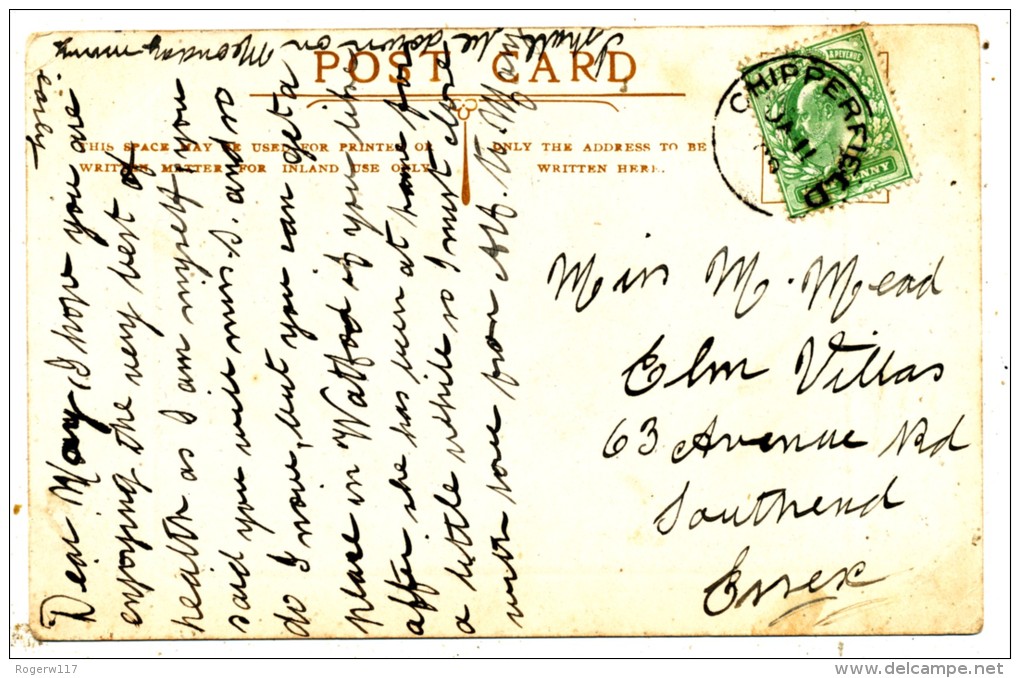 POST CARD
THIS SPACE MAY BE USED FOR PRINTED OR
WRITTEN MATTER FOR INLAND USE ONLY.
ONLY THE ADDRESS TO BE
WRITTEN HERE.
CHIPPERFIELD
JA 11
Miss M. Mead
Elm Villas
63 Avenue Rd
Southend
Essex
Dear Mary, I hope you are
enjoying the very best of
health as I am myself you
said you will miss S. and so
do I now, but you can get a
place in Watford if you like
after she has been at home for
a little while so I must close
with love from
I shall be down on
Monday
Rogerw117
www.delcampe.net